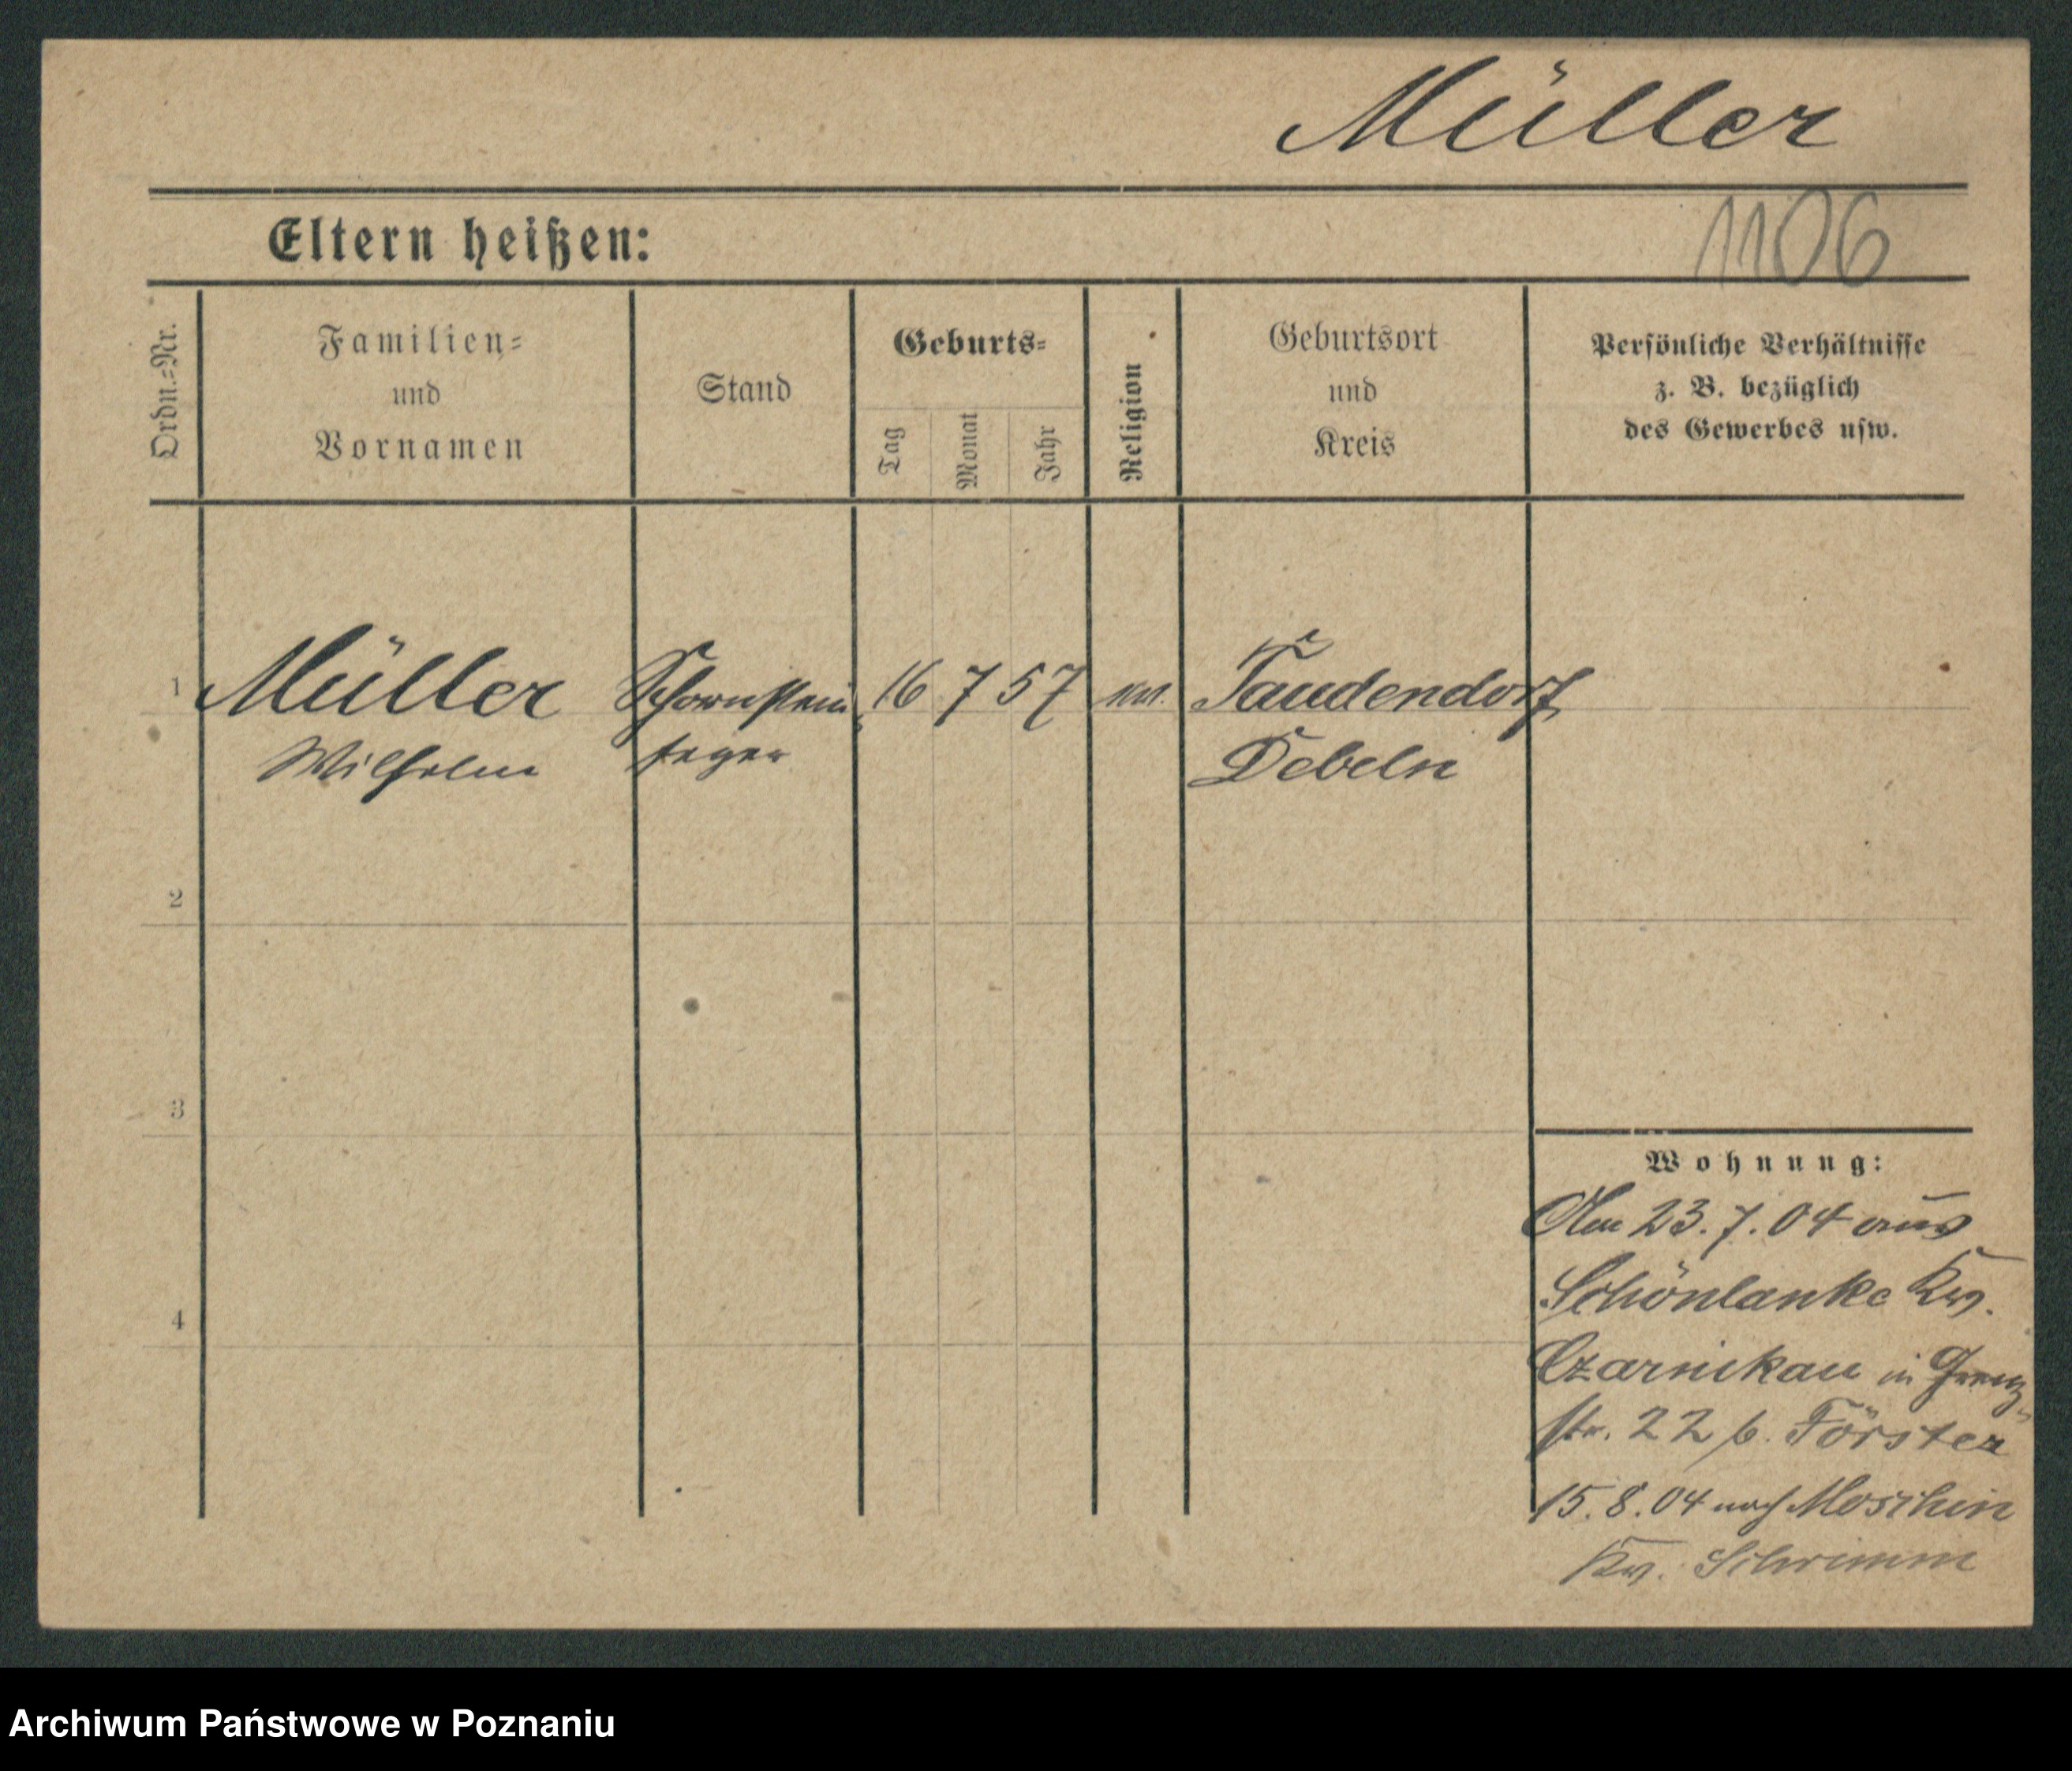 Müller
1106
Eltern heißen:
Ordn.=Nr.
Familien=
und
Vornamen
Stand
Geburts=
Tag
Monat
Jahr
Religion
Geburtsort
und
Kreis
Persönliche Verhältnisse
z. B. bezüglich
des Gewerbes usw.
1 Müller Schornstein= 16 7 57 Taudendorf
Wilhelm feger Debeln
2
3
4
Wohnung:
Am 23.7.04 aus
Schönlanke Krs.
Czarnikau in Grenz=
str. 22 b. Förster
15.8.04 nach Moschin
Krs. Schrimm
Archiwum Państwowe w Poznaniu